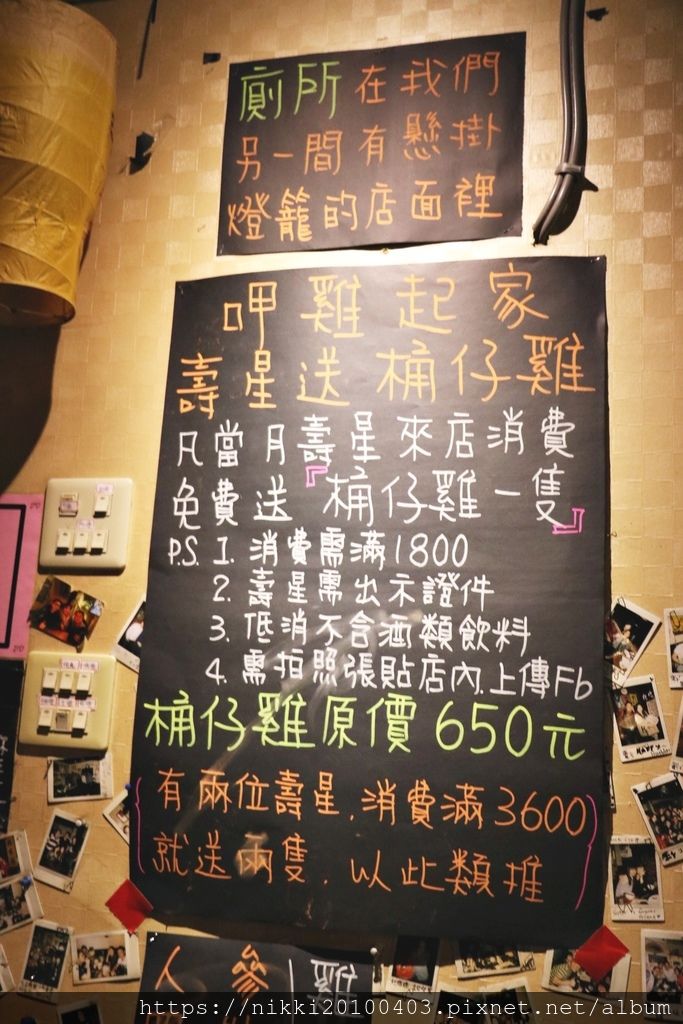 廁所在我們
另一間有懸掛
燈籠的店面裡
呷雞起家
壽星送桶仔雞
凡當月壽星來店消費
免費送『桶仔雞一隻』
P.S. 1. 消費需滿1800
2. 壽星需出示證件
3. 低消不含酒類飲料
4. 需拍照張貼店內.上傳Fb
桶仔雞原價650元
(有兩位壽星.消費滿3600
就送兩隻.以此類推)
人參雞
https://nikki20100403.pixnet.net/album